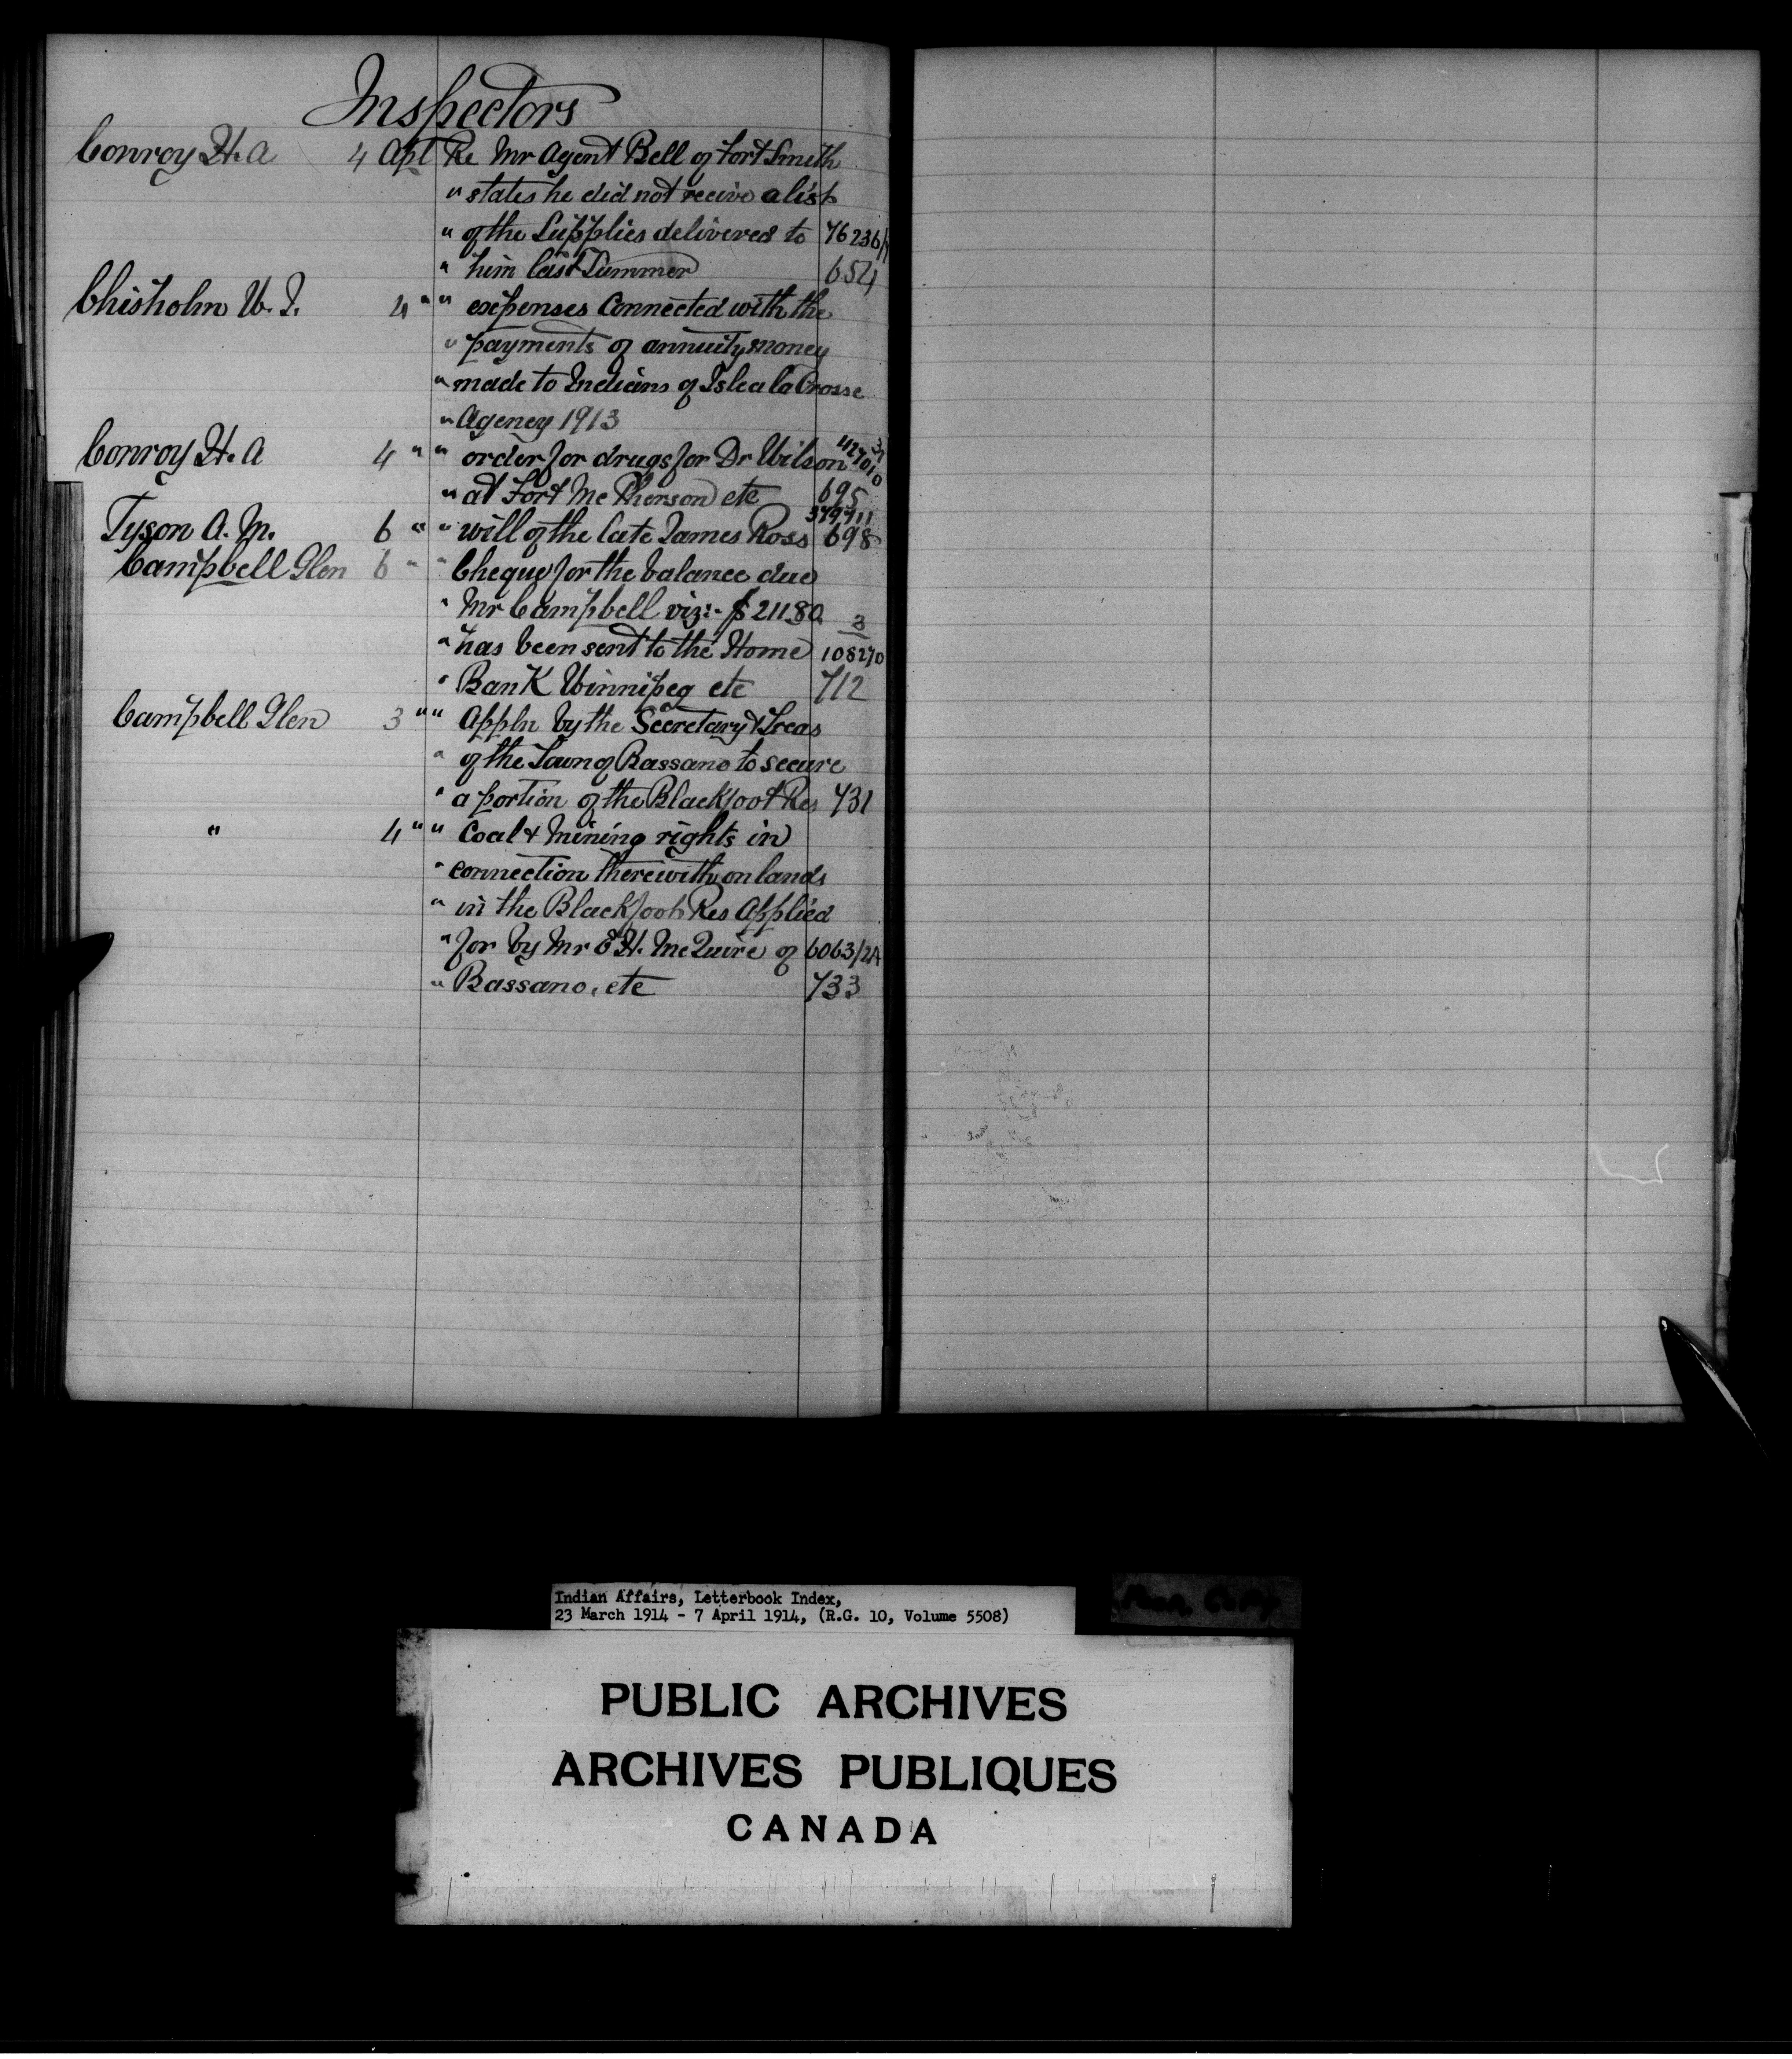 Inspectors
Conroy H. A 4 Apl Re Mr Agent Bell of Fort Smith
" states he did not recive a list
" of the Supplies delivered to 76236/1
" him last Summer 654
Chisholm W. J. 4 " " expenses Connected with the
" payments of annuity money
" made to Indians of Isle a la Crosse
" Agency 1913
Conroy H. A 4 " " order for drugs for Dr Wilson
" at Fort Mc Pherson etc 695
379711
Tyson A. M. 6 " " will of the late James Ross 698
Campbell Glen 6 " " Cheque for the balance due
" Mr Campbell viz:- $211.80 3
" has been sent to the Home 108270
" Bank Winnipeg etc 712
Campbell Glen 3 " " Appln by the Secretary & Treas
" of the Town of Bassano to secure
" a portion of the Blackfoot Res 731
" 4 " " Coal & Mining rights in
" connection therewith on lands
" in the Blackfoot Res Applied
" for by Mr E H. McQuire of 6063/2A
" Bassano, etc 733
Indian Affairs, Letterbook Index,
23 March 1914 - 7 April 1914, (R.G. 10, Volume 5508)
PUBLIC ARCHIVES
ARCHIVES PUBLIQUES
CANADA